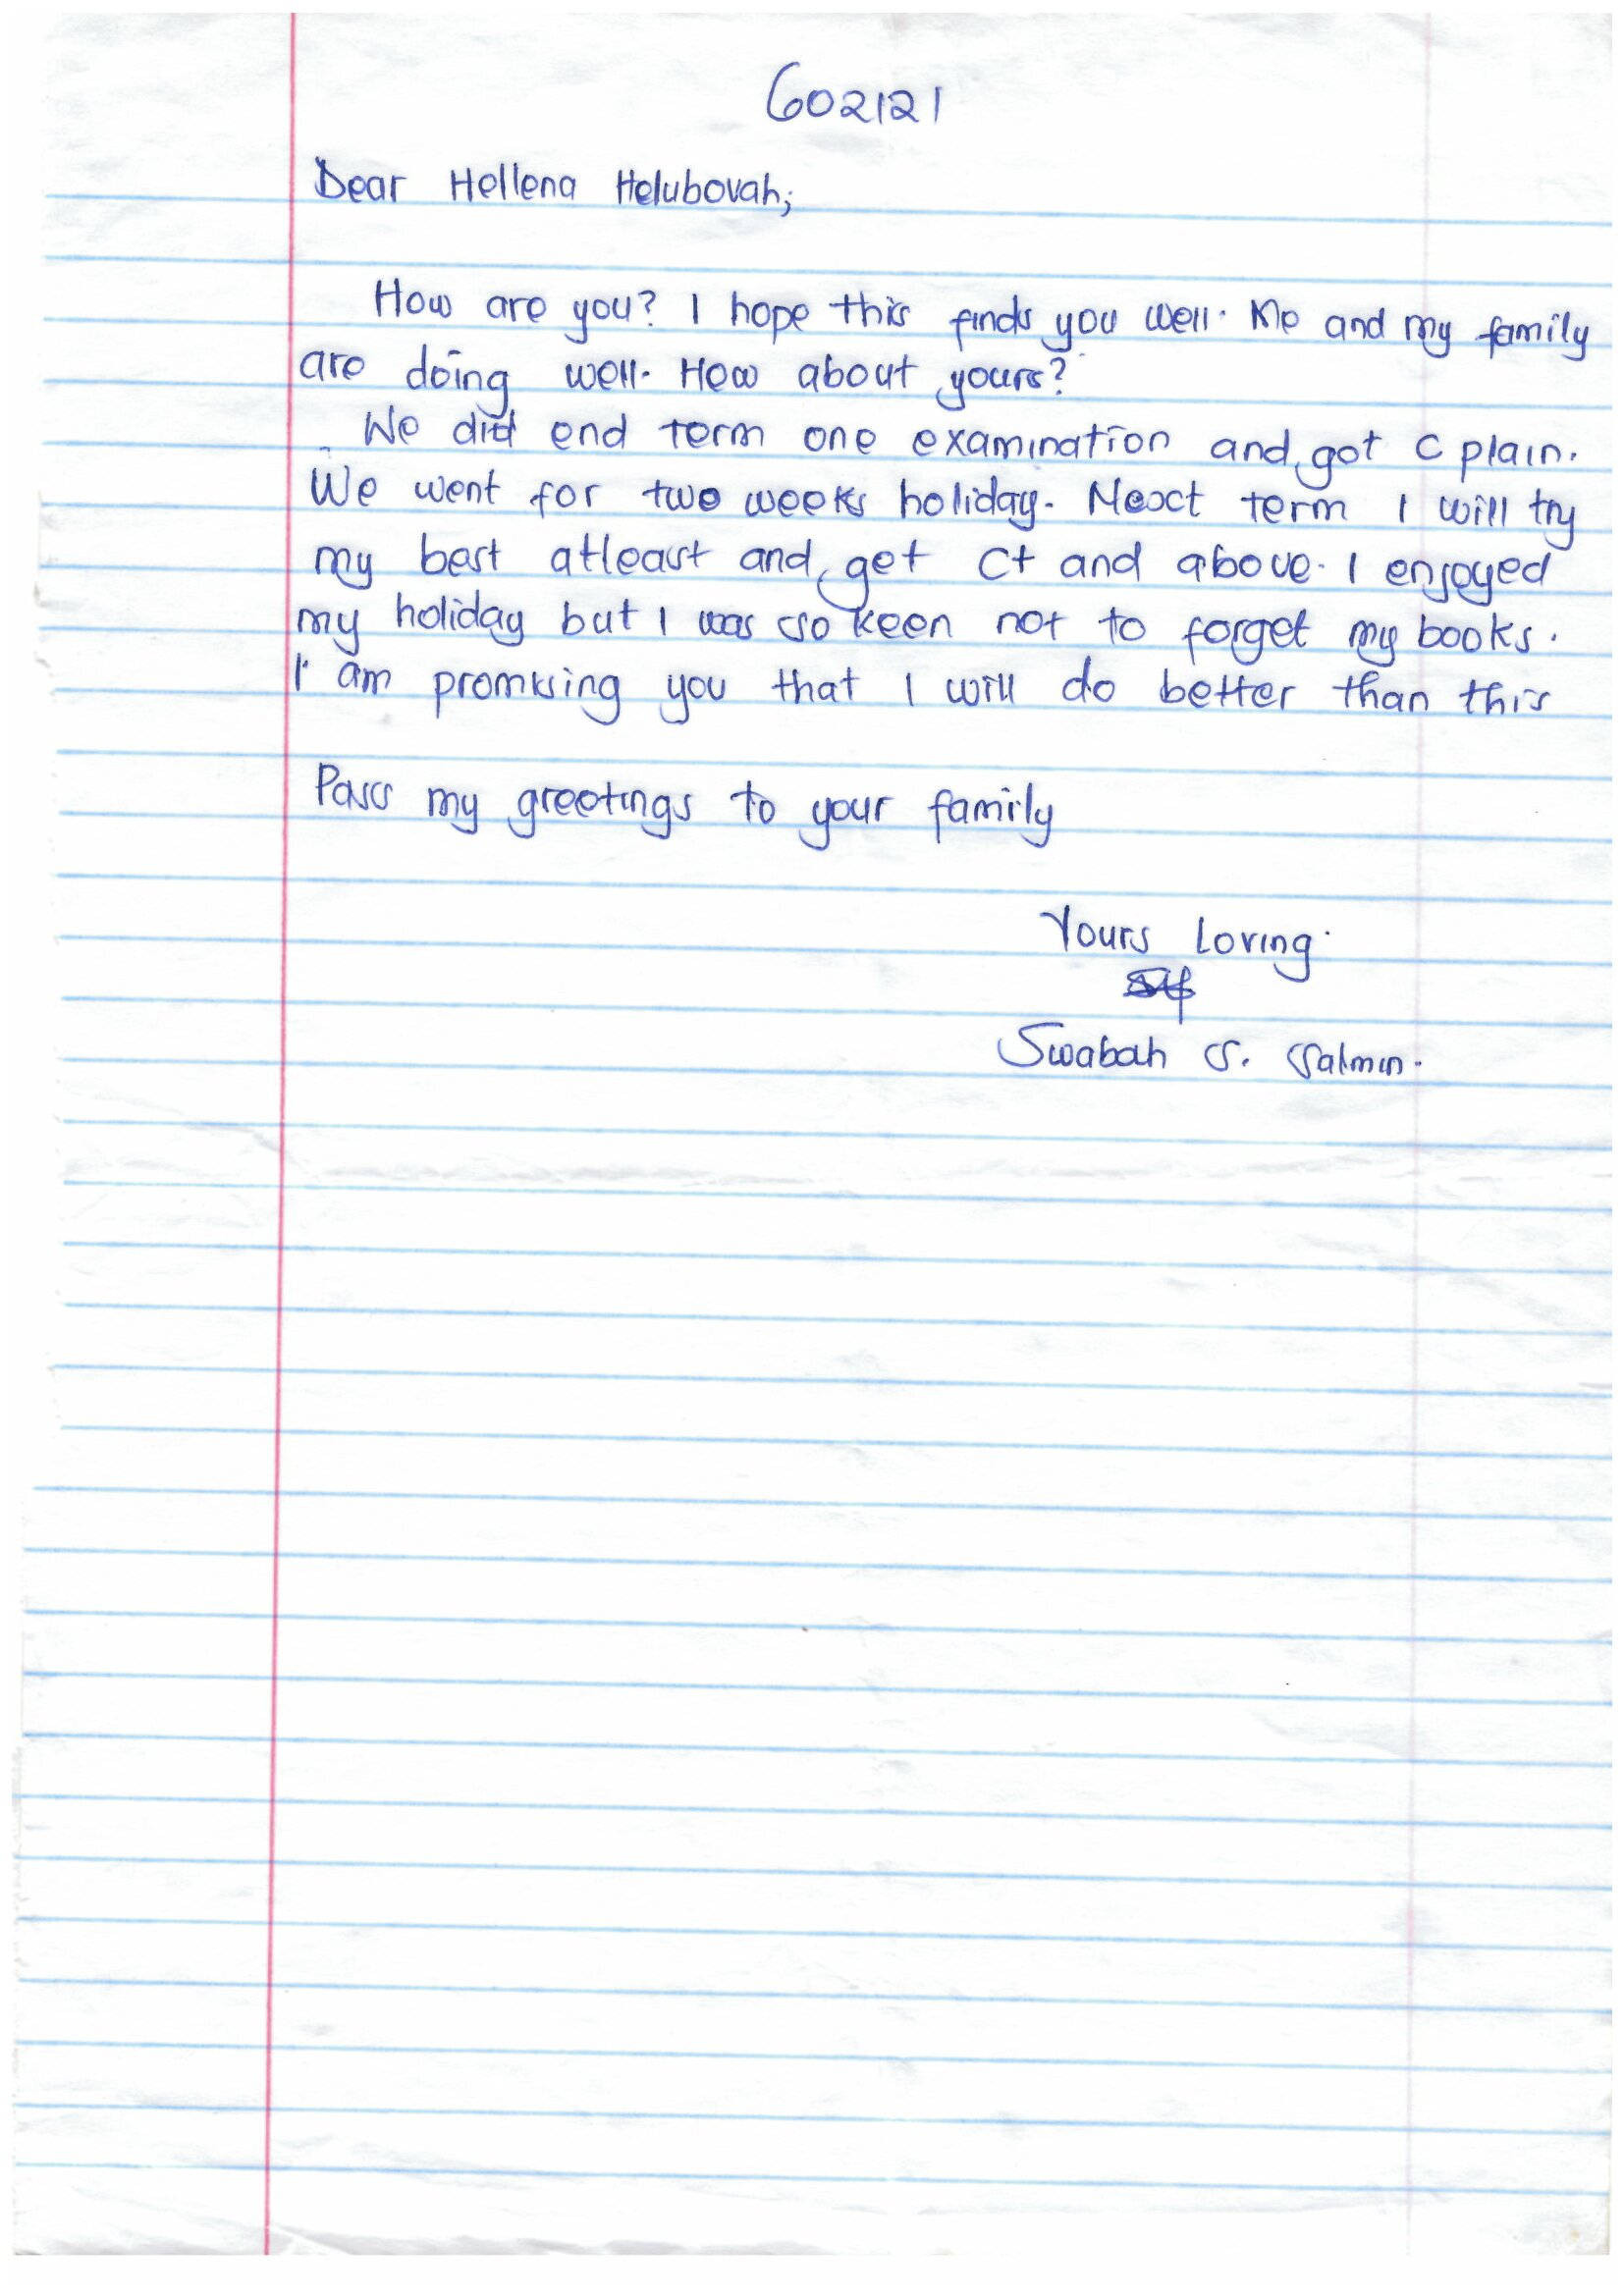 602121
Dear Hellena Holubovah;
How are you? I hope this finds you well. Me and my family
are doing well. How about yours?
We did end term one examination and got C plain.
We went for two weeks holiday. Next term I will try
my best atleast and get C+ and above. I enjoyed
my holiday but I was so keen not to forget my books.
I am promising you that I will do better than this
Pass my greetings to your family
Yours Loving.
Swabah S. Salmin.